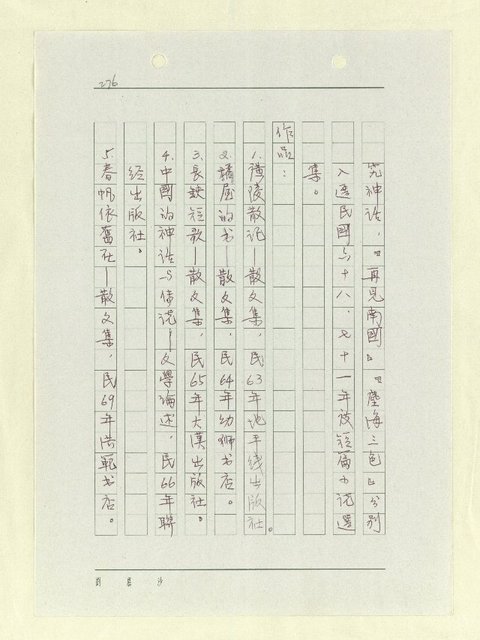 276
究神話，『再見南國』『塵海三色』分別
入選民國六十八、七十一年被短篇小說選
集。
作品：
1. 隋陵散記—散文集，民63年地平线出版社。
2. 橘屋的书—散文集，民64年幼狮书店。
3. 長鋏短歌—散文集，民65年大漢出版社。
4. 中國的神話与传说—文學論述，民66年聯
经出版社。
5. 春帆依舊在—散文集，民69年浩瀚书店。
劉慕沙